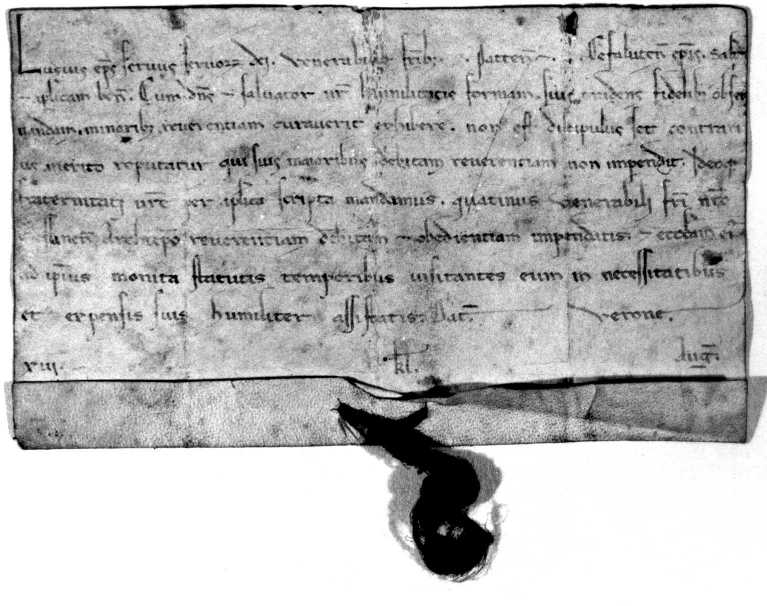 Lucius eps servus servoꝝ dei. Venerabilib; frib; . . Pacten̄. . . Cefaluten̄ epis. salt̄
⁊ aplicam ben̄. Cum dn̄s ⁊ salvator nr̄ humilitatis formam. suis tradens fidelib; obser
uandam. minorib; reverentiam curaverit exhibere. non est discipulus set contrari
us merito reputatur qui suis maioribus debitam reverentiam non impendit. Ideoq;
fraternitati ur̄e per aplica scripta mandamus. quatinus venerabili frī nr̄o
Archiepo reverentiam debitam ⁊ obedientiam impendatis. ⁊ eccl̄iam ei᷒
ad ipsius monita statutis temporibus visitantes eum in necessitatibus
et expensis suis humiliter assistatis. Dat̄. Verone.
xiii. kl̄. Aug̅.